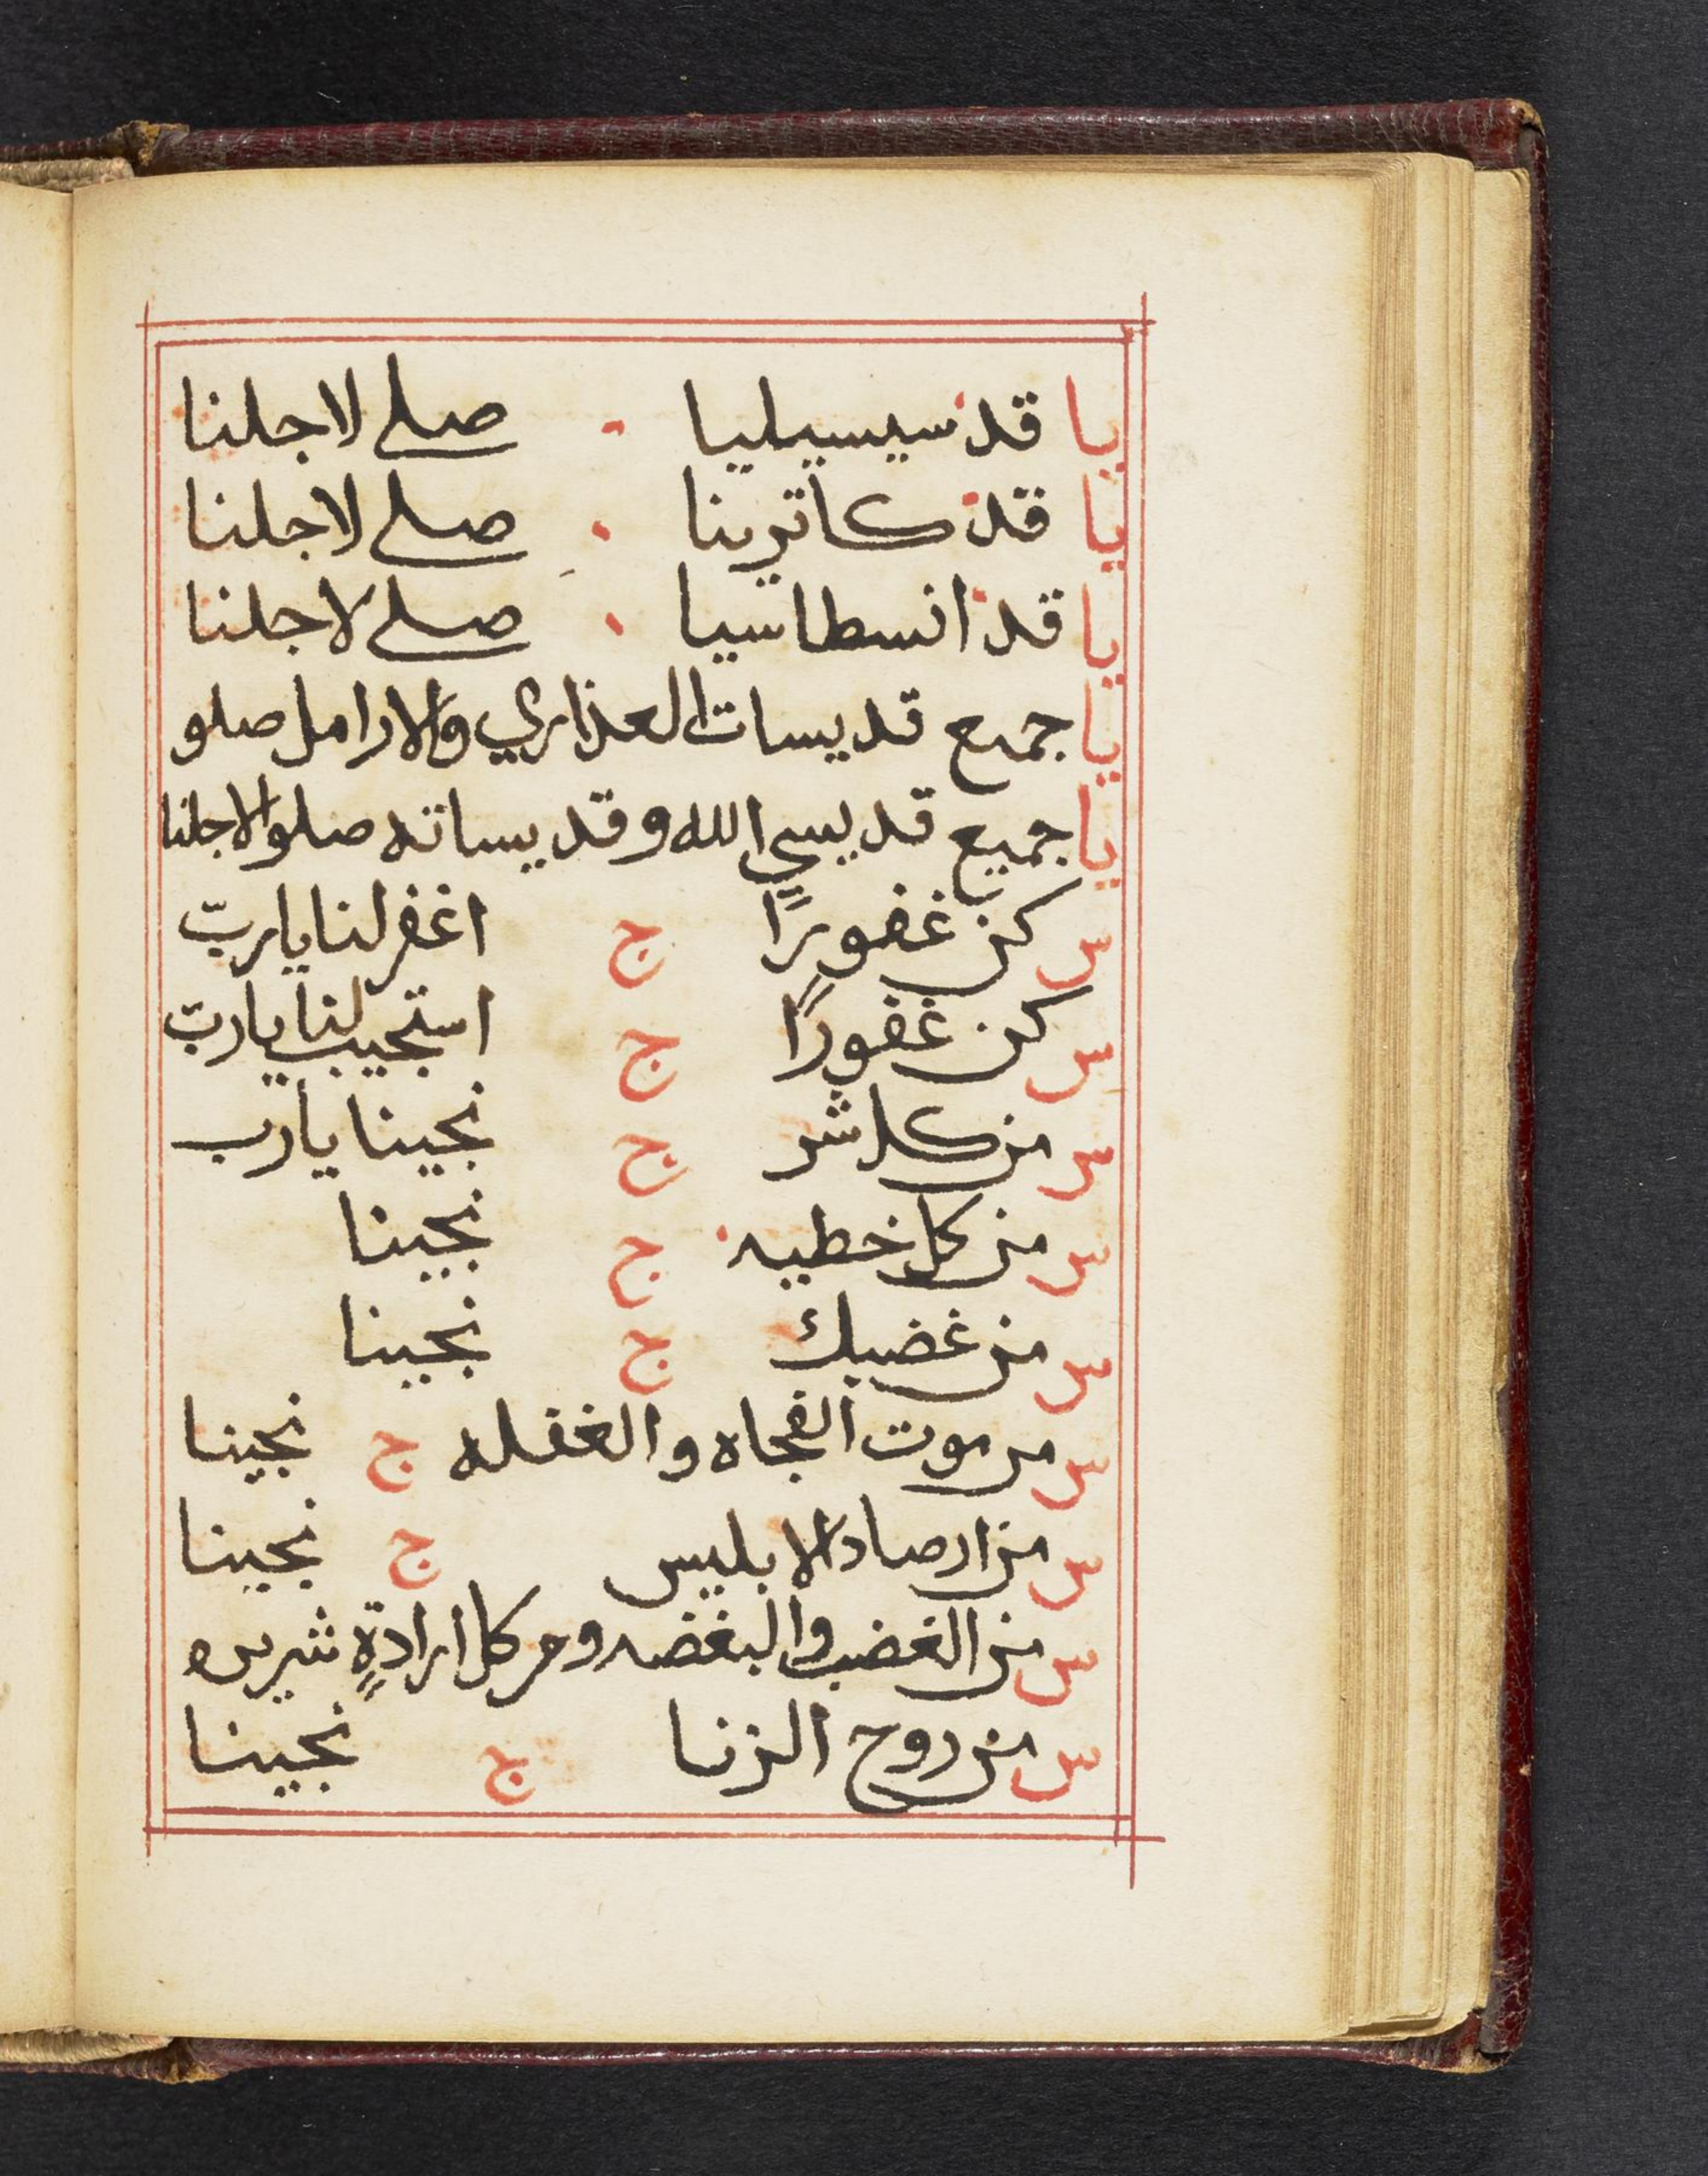 يا قد سيسيليا · صلي لاجلنا
يا قد كاترينا · صلي لاجلنا
يا قد انسطاسيا · صلي لاجلنا
يا جميع قديسات العذاري والارامل صلو
يا جميع قديسي الله وقديساته صلوا لاجلنا
س كن غفورًا ج اغفر لنا يا ربّ
س كن غفورًا ج استجيب لنا يا ربّ
س من كل شر ج نجينا يا رب
س من كل خطيه ج نجينا
س من غضبك ج نجينا
س من موت الفجاه والغفله ج نجينا
س من ارصاد الابليس ج نجينا
س من الغضب والبغضه ومن كل ارادةٍ شريره
س من روح الزنا ج نجينا